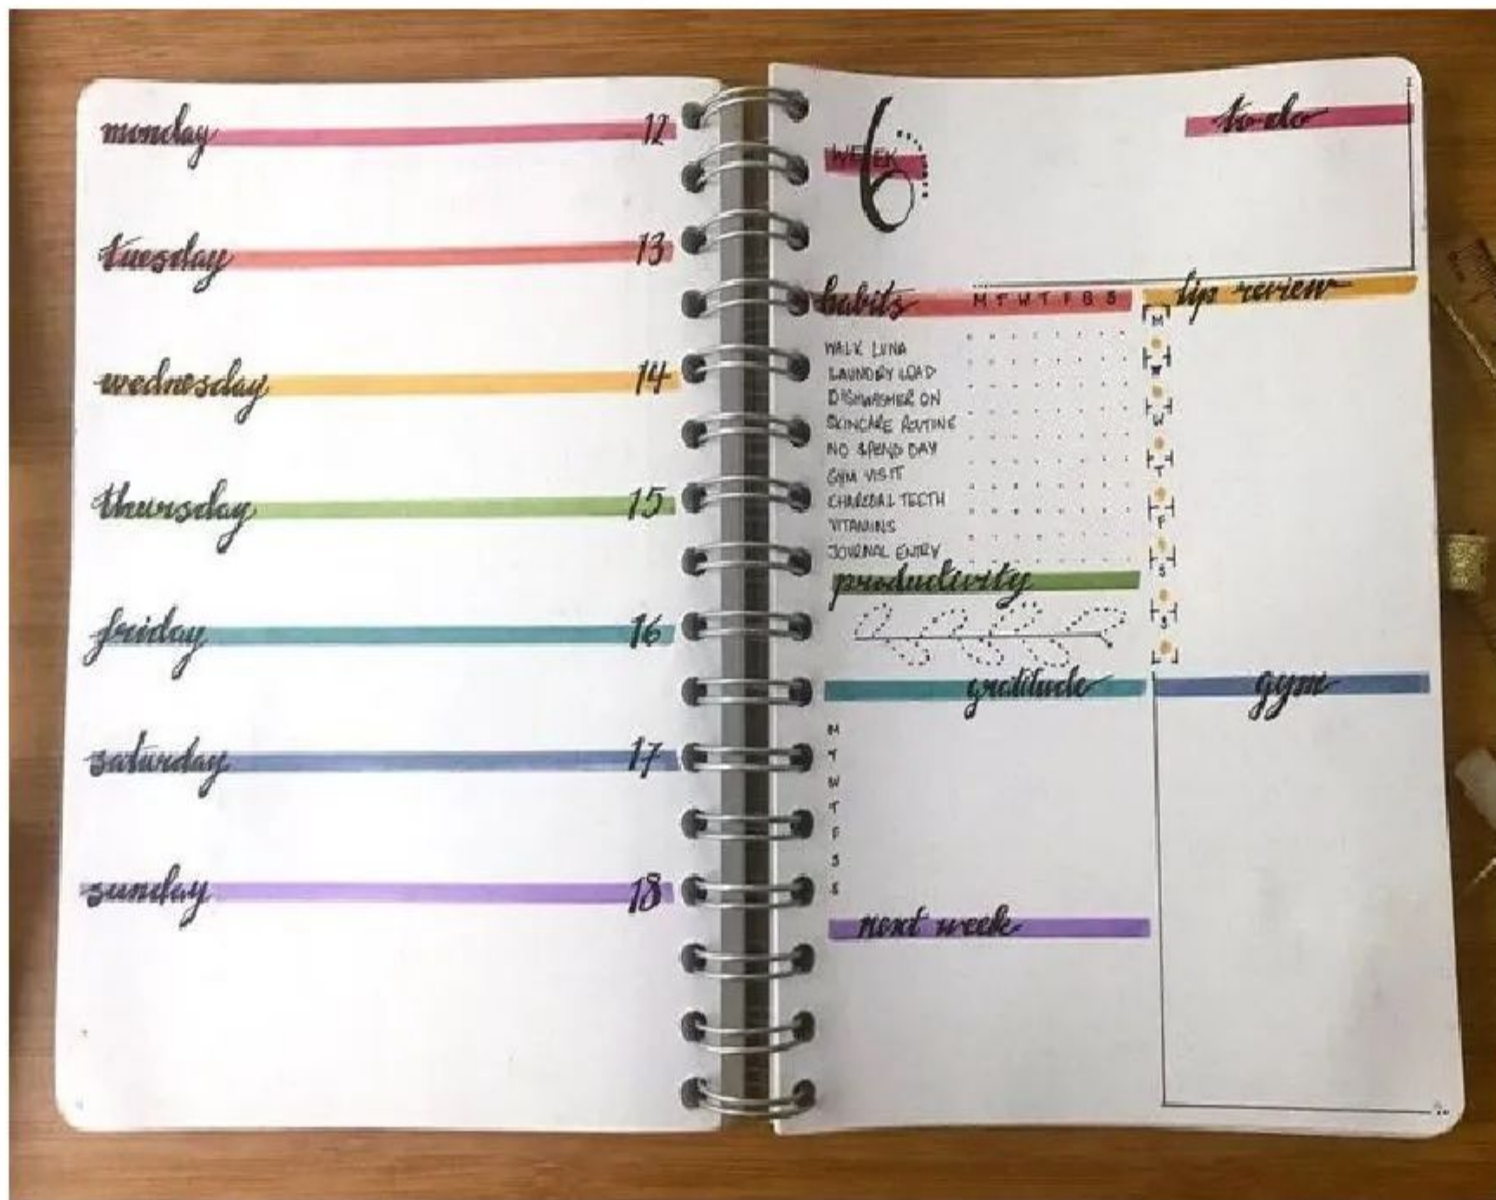 monday 12
tuesday 13
wednesday 14
thursday 15
friday 16
saturday 17
sunday 18
WEEK 6
to-do
habits M T W T F S S
WALK LUNA
LAUNDRY LOAD
DISHWASHER ON
SKINCARE ROUTINE
NO SPEND DAY
GYM VISIT
CHARCOAL TEETH
VITAMINS
JOURNAL ENTRY
lip review
M
W
T
F
S
S
productivity
gratitude
M
T
W
T
F
S
S
next week
gym